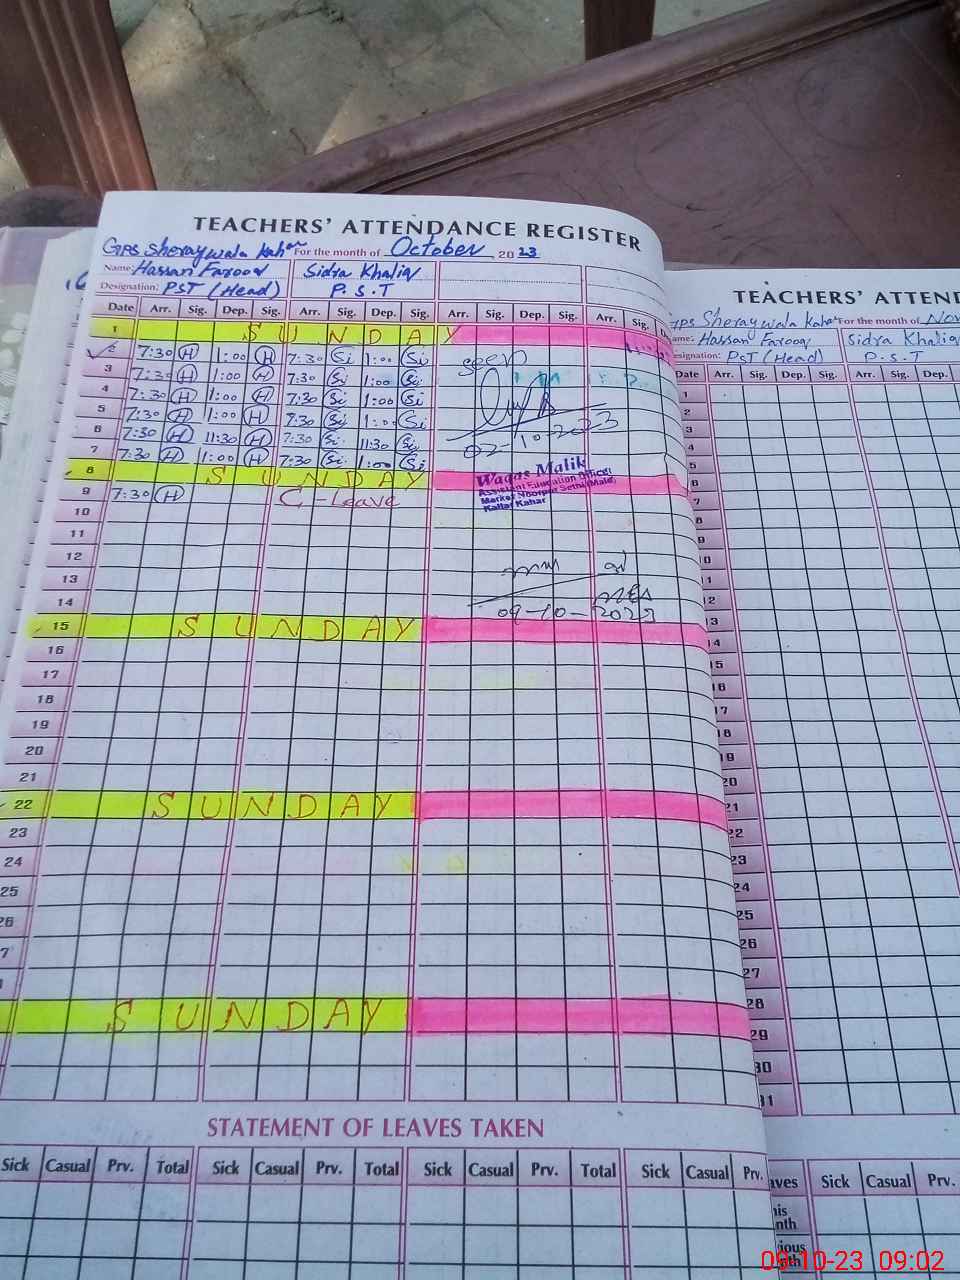 TEACHERS' ATTENDANCE REGISTER
GPS Sheraywala Kahar For the month of October 2023
Name: Hassan Farooq Sidra Khaliq
Designation: PST (Head) P.S.T
Date Arr. Sig. Dep. Sig. Arr. Sig. Dep. Sig. Arr. Sig. Dep. Sig. Arr. Sig.
1 SUNDAY
2 7:30 H 1:00 H 7:30 Si 1:00 Si seen
3 7:30 H 1:00 H 7:30 Si 1:00 Si
4 7:30 H 1:00 H 7:30 Si 1:00 Si
5 7:30 H 1:00 H 7:30 Si 1:00 Si
6 7:30 H 11:30 H 7:30 Si 11:30 Si
7 7:30 H 1:00 H 7:30 Si 1:00 Si
02-10-2023
8 SUNDAY
Waqas Malik
Assistant Education Officer
Markaz Noorpur Sethi (Male)
Kallar Kahar
9 7:30 H C-Leave
10
11
12
13
14
09-10-2023
15 SUNDAY
16
17
18
19
20
21
22 SUNDAY
23
24
25
26
7
SUNDAY
STATEMENT OF LEAVES TAKEN
Sick Casual Prv. Total Sick Casual Prv. Total Sick Casual Prv. Total Sick Casual Prv.
TEACHERS' ATTEND
GPS Sheraywala Kahar For the month of Nov
ame: Hassan Farooq Sidra Khaliq
esignation: PST (Head) P.S.T
Date Arr. Sig. Dep. Sig. Arr. Sig. Dep.
1
2
3
4
5
6
7
8
9
10
11
12
13
14
15
16
17
18
19
20
21
22
23
24
25
26
27
28
29
30
31
aves Sick Casual Prv.
his
nth
ious
nth
09-10-23 09:02